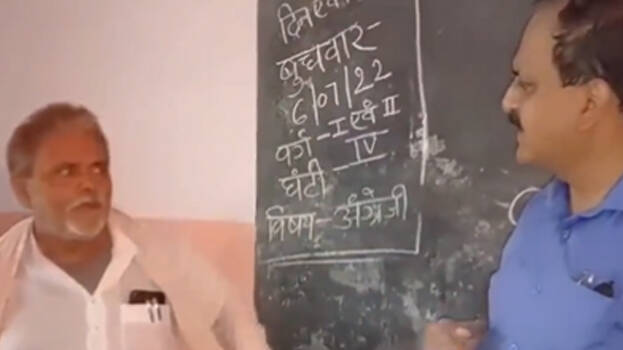 बुधवार-
6/07/22
वर्ग - I एवं II
घंटी IV
विषय:- अंग्रेजी